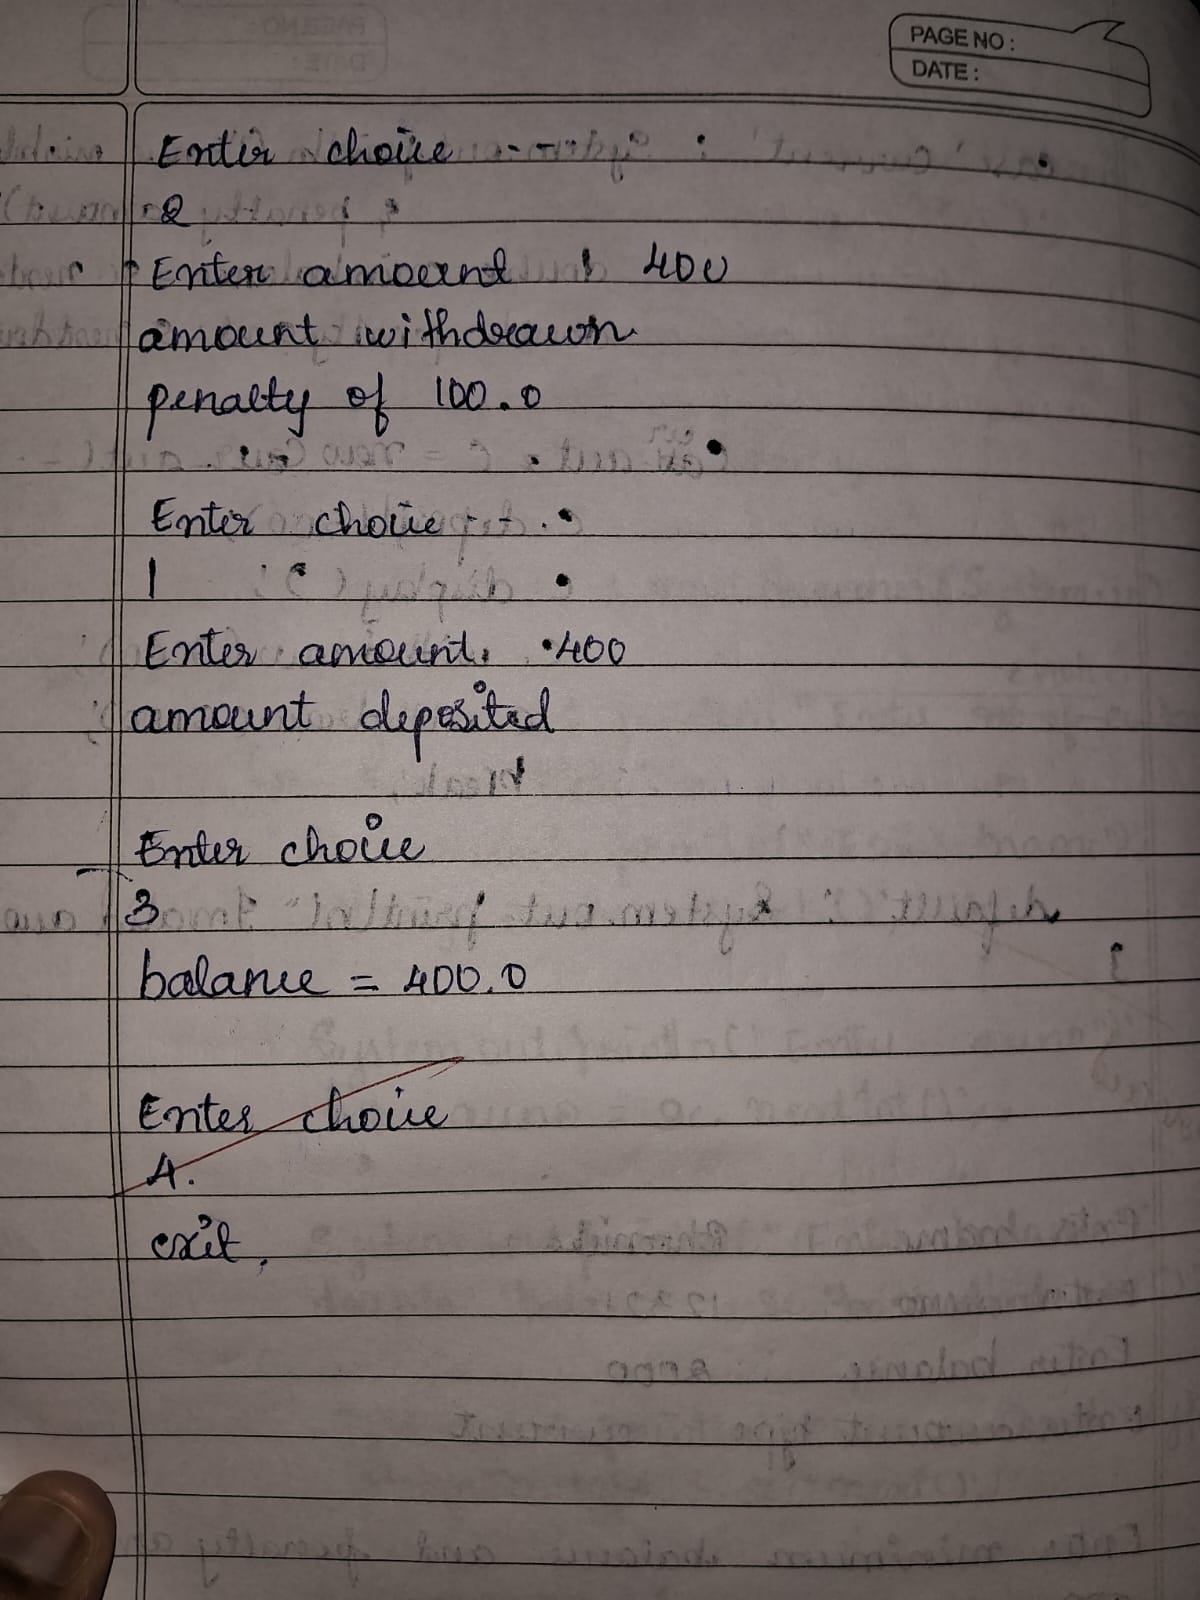 PAGE NO :
DATE :
Enter choice - - - :
2
Enter amount : 400
amount withdrawn
penalty of 100.0
Enter choice - - .
1
Enter amount. 400
amount deposited
Enter choice
3
balance = 400.0
Enter choice
4.
exit.